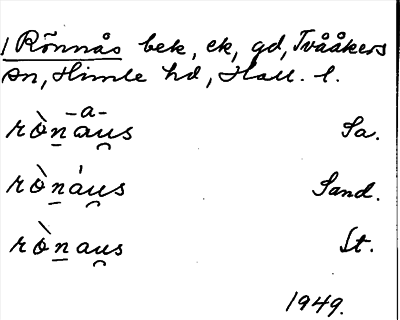 1 Rönnås bek, ek, gd, Tvååkers
sn, Himle hd, Hall. l.
-a-
ròṉau̯s Sa.
ròṉáu̯s Sand.
ròṉau̯s St.
1949.